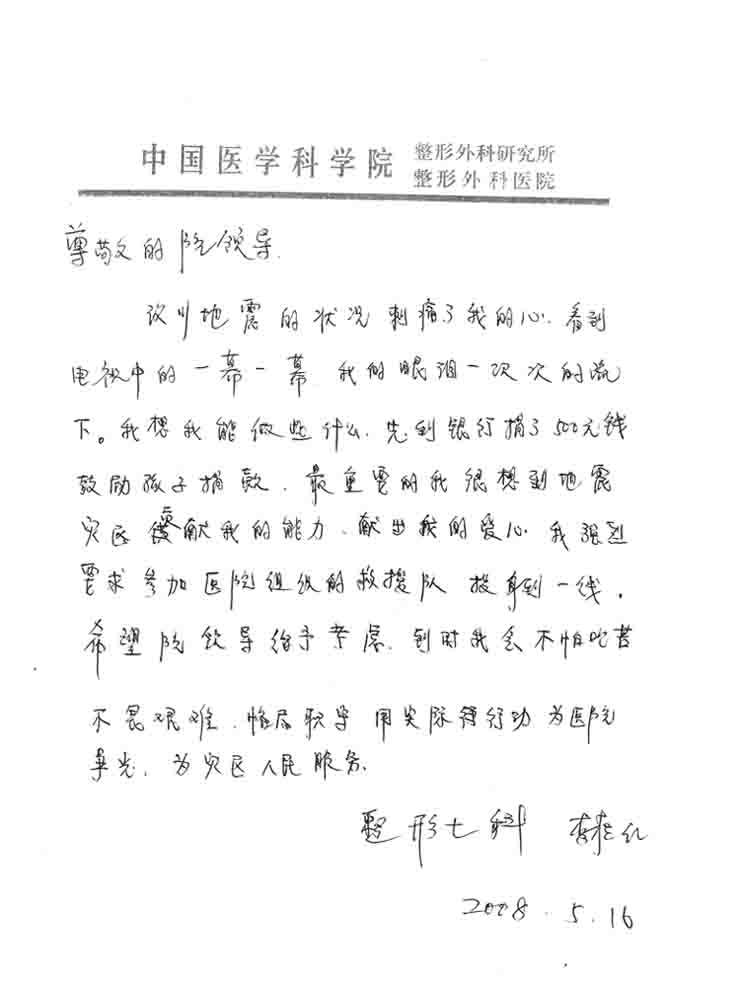 中国医学科学院 整形外科研究所
整形外科医院
尊敬的院领导.
汶川地震的状况刺痛了我的心.看到
电视中的一幕一幕.我的眼泪一次次的流
下。我想我能做些什么.先到银行捐了500元钱
鼓励孩子捐款.最重要的我很想到地震
灾区贡献我的能力、献出我的爱心.我强烈
要求参加医院组织的救援队 投身到一线.
希望院领导给予考虑.到时我会不怕吃苦
不畏艰难.恪尽职守 用实际行动为医院
争光.为灾区人民服务.
整形七科
2008.5.16